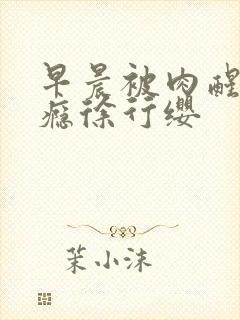 早晨被肉醒
瘾徐行缨
茉小沫